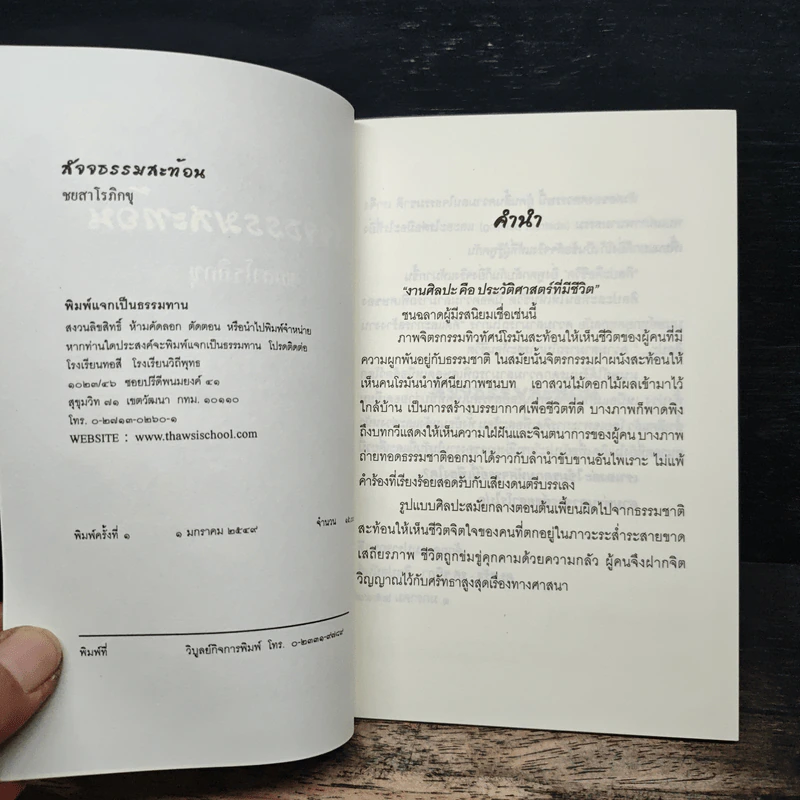 สัจจธรรมสะท้อน
ชยสาโรภิกขุ
พิมพ์แจกเป็นธรรมทาน
สงวนลิขสิทธิ์ ห้ามคัดลอก ตัดตอน หรือนำไปพิมพ์จำหน่าย
หากท่านใดประสงค์จะพิมพ์แจกเป็นธรรมทาน โปรดติดต่อ
โรงเรียนทอสี โรงเรียนวิถีพุทธ
๑๐๒๓/๔๖ ซอยปรีดีพนมยงค์ ๔๑
สุขุมวิท ๗๑ เขตวัฒนา กทม. ๑๐๑๑๐
โทร. ๐-๒๗๑๓-๐๒๖๐-๑
WEBSITE : www.thawsischool.com
พิมพ์ครั้งที่ ๑ ๑ มกราคม ๒๕๔๙ จำนวน
พิมพ์ที่ วิบูลย์กิจการพิมพ์ โทร.
คำนำ
"งานศิลปะ คือ ประวัติศาสตร์ที่มีชีวิต"
ชนฉลาดผู้มีรสนิยมเชื่อเช่นนี้
ภาพจิตรกรรมทิวทัศน์โรมันสะท้อนให้เห็นชีวิตของผู้คนที่มี
ความผูกพันอยู่กับธรรมชาติ ในสมัยนั้นจิตรกรรมฝาผนังสะท้อนให้
เห็นคนโรมันนำทัศนียภาพชนบท เอาสวนไม้ดอกไม้ผลเข้ามาไว้
ใกล้บ้าน เป็นการสร้างบรรยากาศเพื่อชีวิตที่ดี บางภาพก็พาดพิง
ถึงบทกวีแสดงให้เห็นความใฝ่ฝันและจินตนาการของผู้คน บางภาพ
ถ่ายทอดธรรมชาติออกมาได้ราวกับลำนำขับขานอันไพเราะ ไม่แพ้
คำร้องที่เรียงร้อยสอดรับกับเสียงดนตรีบรรเลง
รูปแบบศิลปะสมัยกลางตอนต้นเพี้ยนผิดไปจากธรรมชาติ
สะท้อนให้เห็นชีวิตจิตใจของคนที่ตกอยู่ในภาวะระส่ำระสายขาด
เสถียรภาพ ชีวิตถูกข่มขู่คุกคามด้วยความกลัว ผู้คนจึงฝากจิต
วิญญาณไว้กับศรัทธาสูงสุดเรื่องทางศาสนา